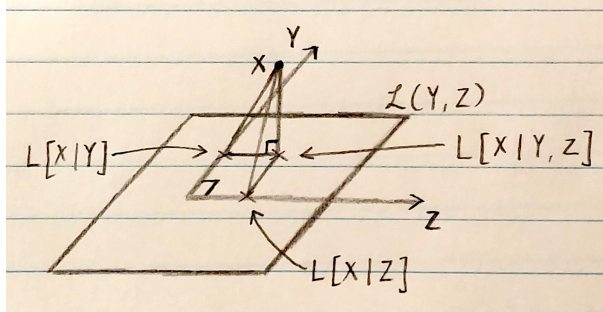 Y
X
ℒ(Y, Z)
L[X|Y]
L[X|Y, Z]
Z
L[X|Z]